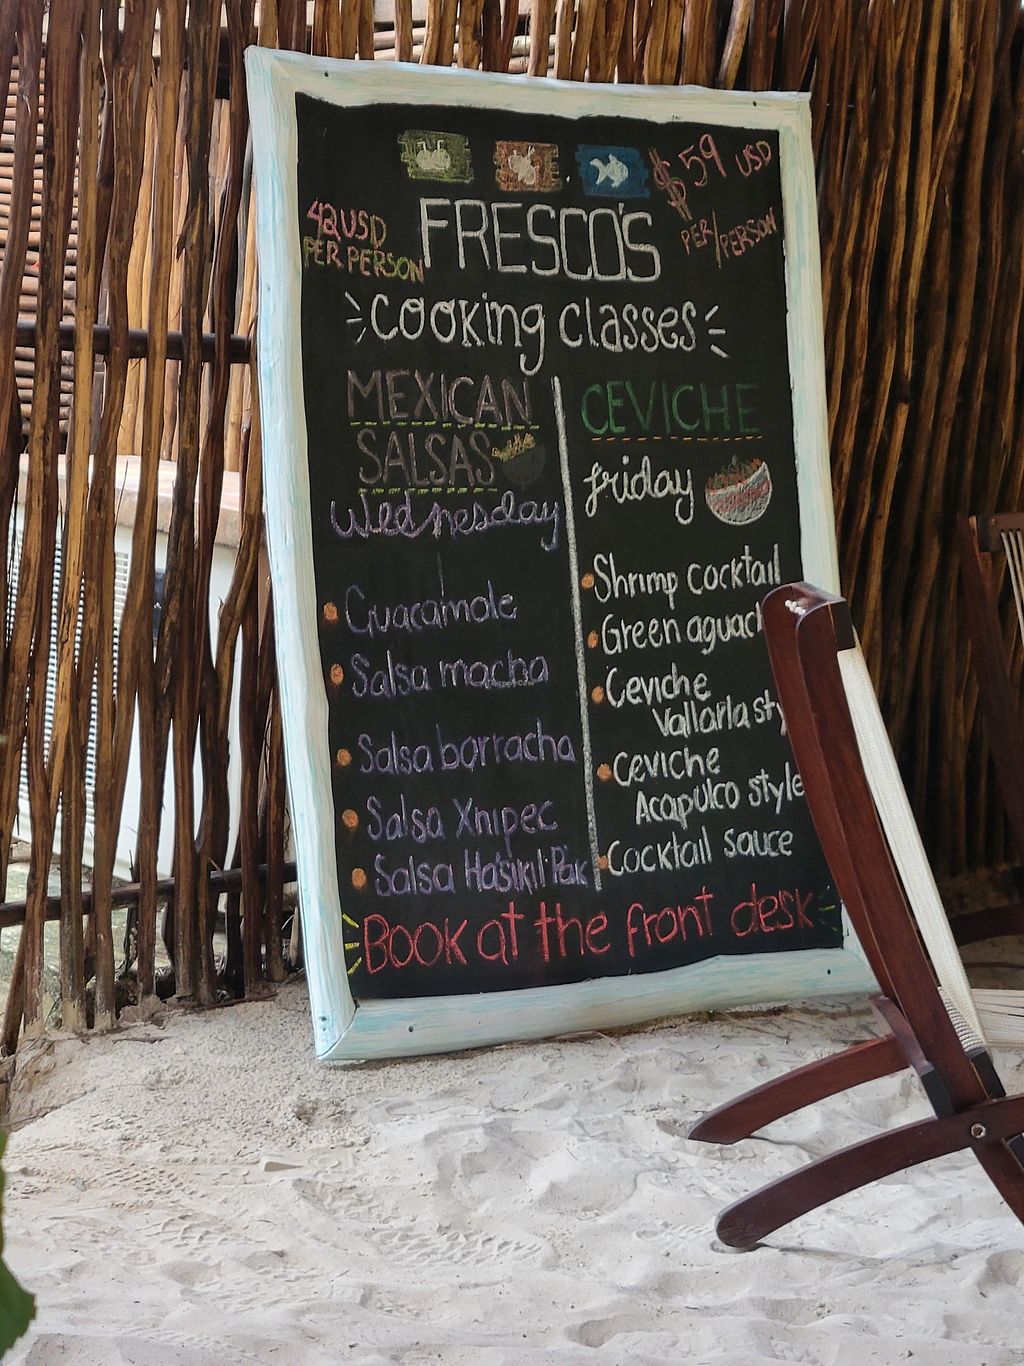 $59 USD
PER/PERSON
42 USD
PER PERSON
FRESCO'S
cooking classes
MEXICAN
SALSAS
Wednesday
Guacamole
Salsa macha
Salsa borracha
Salsa Xnipec
Salsa Hasikil·Pak
CEVICHE
friday
Shrimp cocktail
Green aguac
Ceviche
Vallarta sty
Ceviche
Acapulco style
Cocktail sauce
Book at the front desk